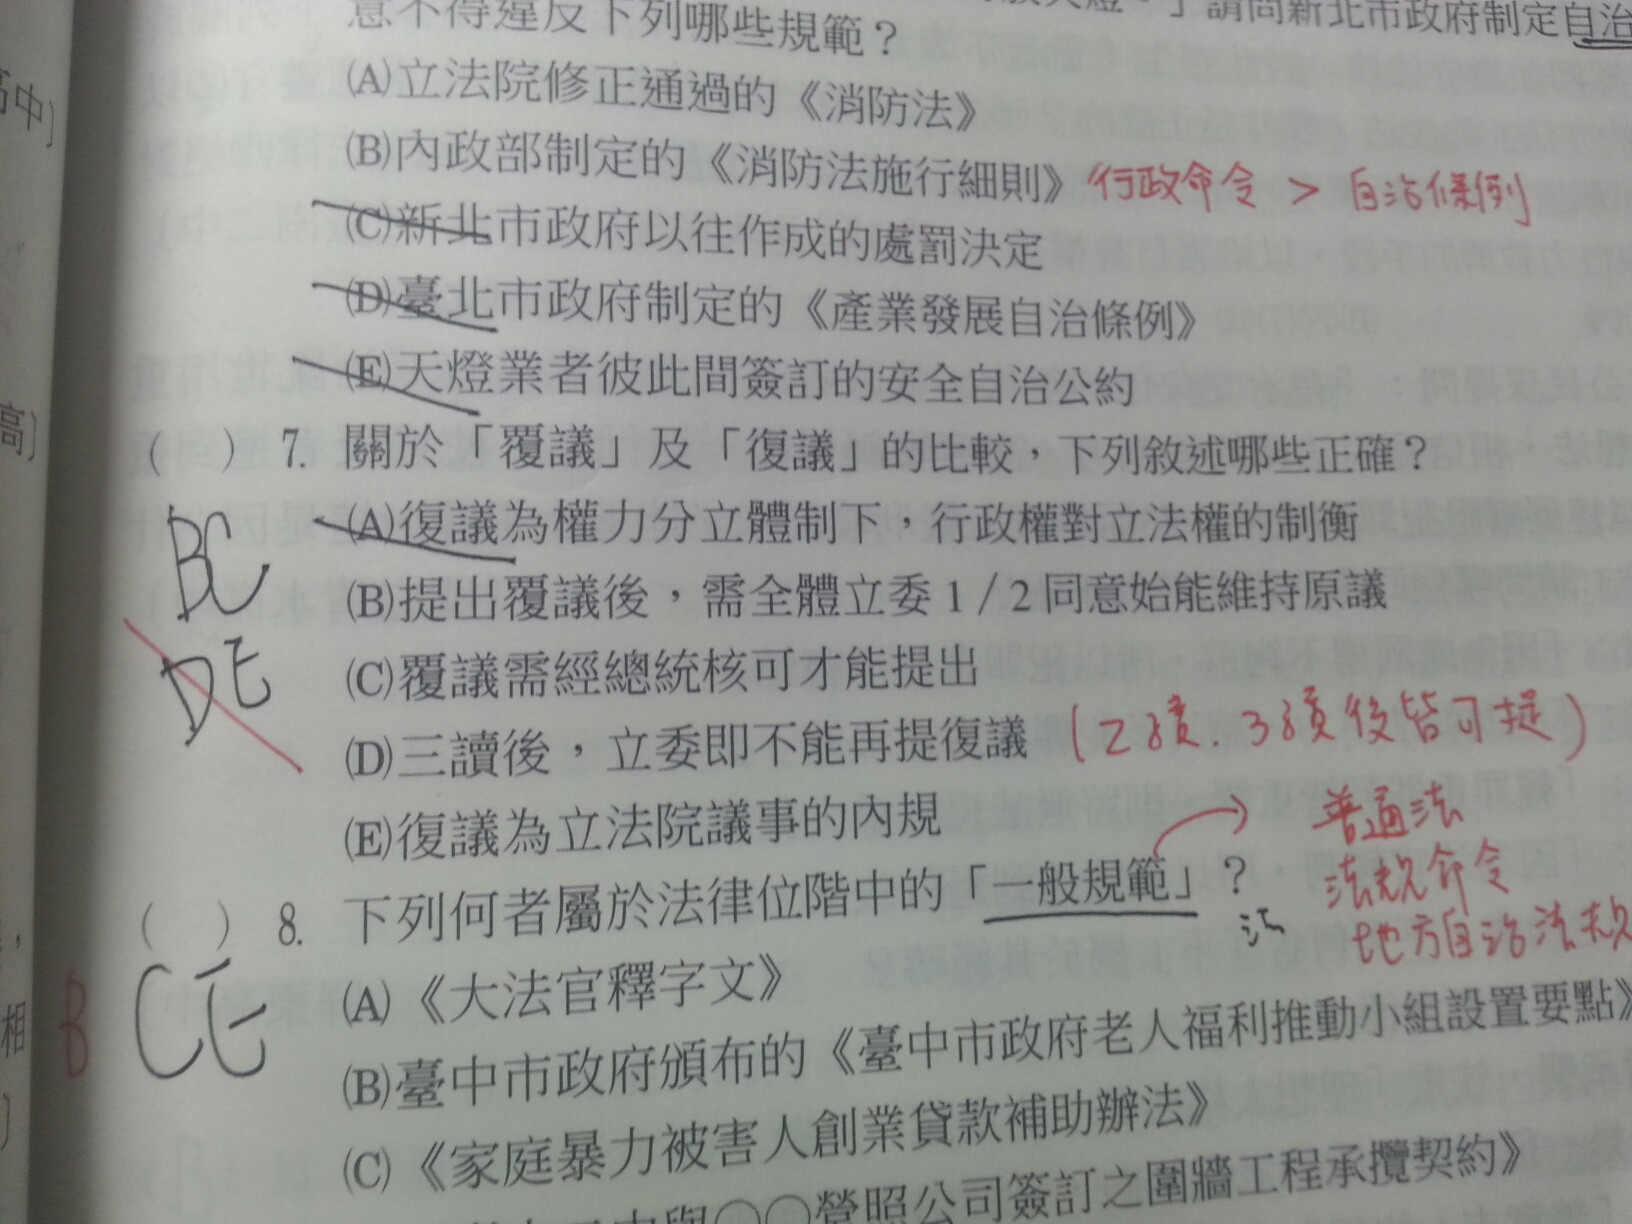 請問新北市政府制定自治
意不得違反下列哪些規範？
(A)立法院修正通過的《消防法》
(B)內政部制定的《消防法施行細則》 行政命令 > 自治條例
(C)新北市政府以往作成的處罰決定
(D)臺北市政府制定的《產業發展自治條例》
(E)天燈業者彼此間簽訂的安全自治公約
( ) 7. 關於「覆議」及「復議」的比較，下列敘述哪些正確？
(A)復議為權力分立體制下，行政權對立法權的制衡
BC
(B)提出覆議後，需全體立委1/2同意始能維持原議
DE
(C)覆議需經總統核可才能提出
(D)三讀後，立委即不能再提復議 (2讀.3讀後皆可提)
(E)復議為立法院議事的內規
普通法
法規命令
地方自治法規
( ) 8. 下列何者屬於法律位階中的「一般規範」？
B CE
(A)《大法官釋字文》
(B)臺中市政府頒布的《臺中市政府老人福利推動小組設置要點》
(C)《家庭暴力被害人創業貸款補助辦法》
○○營照公司簽訂之圍牆工程承攬契約》
高中]
高]
相